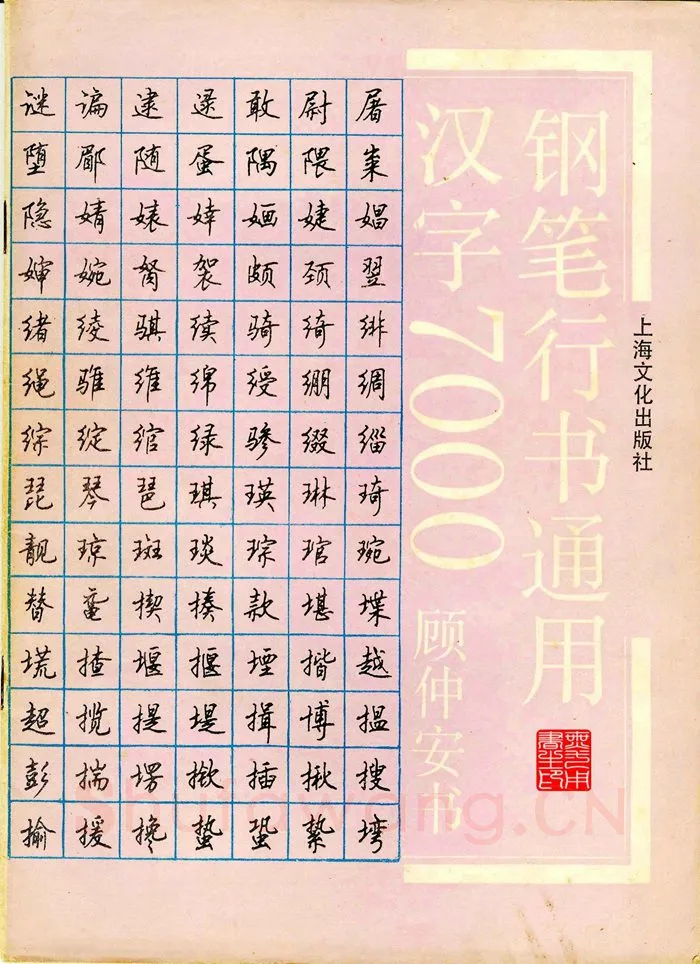 钢笔行书通用
汉字7000
顾仲安书
上海文化出版社
谜 谝 逮 逯 敢 尉 屠
堕 郿 随 蛋 隅 隈 粜
隐 婧 婊 婞 婳 婕 娼
婶 婉 胬 袈 颇 颈 翌
绪 绫 骐 续 骑 绮 绯
绳 骓 维 绵 绶 绷 绸
综 绽 绾 绿 骖 缀 缁
琵 琴 琶 琪 瑛 琳 琦
靓 琼 斑 琰 琮 琯 琬
替 鼋 揳 揍 款 堪 堞
塃 揸 堰 揠 堙 揩 越
超 揽 提 堤 揖 博 揾
彭 揣 塄 揿 插 揪 搜
揄 援 搀 蛰 蛩 絷 塆
Shufawang.CN